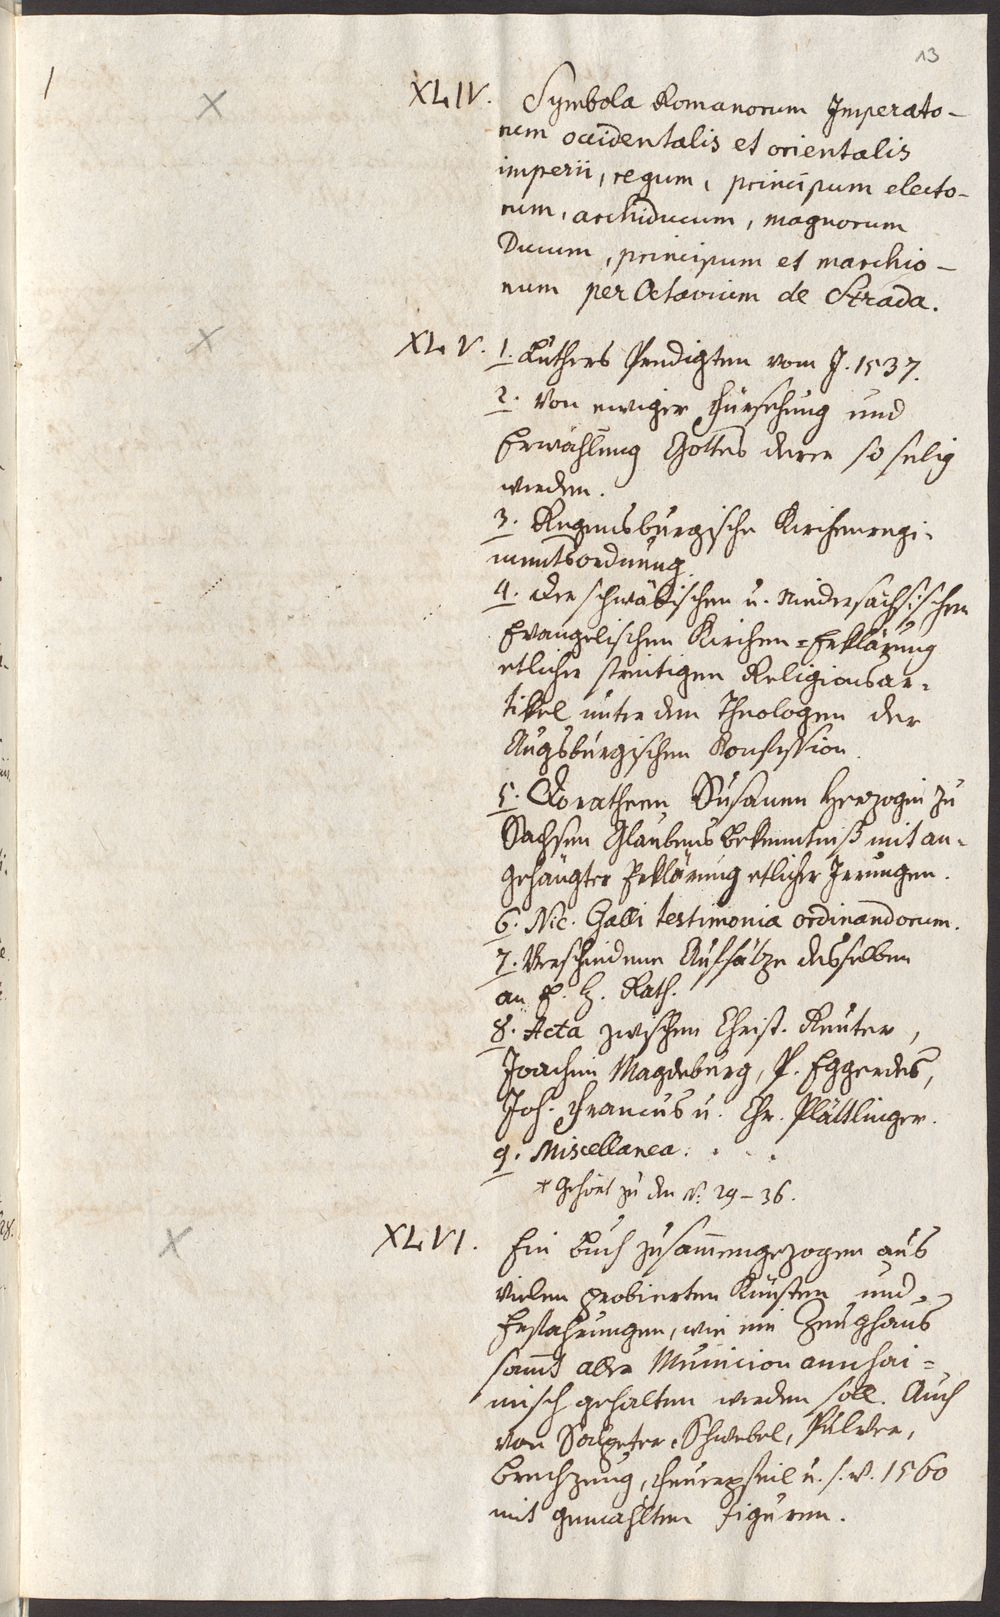 13
XLIV. Symbola Romanorum Imperato-
rum occidentalis et orientalis
imperii, regum, principum electo-
rum, archiducum, magnorum
Ducum, principum et marchio-
num per Octavium de Strada.
XLV. 1. Luthers Predigten vom J. 1537.
2. Von ewiger Fürsehung und
Erwählung Gottes derer so selig
werden.
3. Regensburgische Kirchenregi-
mentsordnung
4. Der schwäbischen u. Niedersächsischen
Evangelischen Kirchen-Erklärung
etlicher streitigen Religionsar-
tikel unter den Theologen der
Augsburgischen Konfession.
5. Dorotheen Susanen Herzogin zu
Sachsen Glaubensbekenntniß mit an-
gehängter Erklärung etlicher Irrungen.
6. Nic. Galli testimonia ordinandorum.
7. Verschiedene Aufsätze desselben
an E. E. Rath.
8. Acta zwischen Christ. Reuter,
Joachim Magdeburg, P. Eggerdes,
Joh. Francus u. Chr. Plättlinger.
9. Miscellanea.
* gehört zu den N. 29-36.
XLVI. Ein Buch zusammengezogen aus
vielen probierten Künsten und
Erfahrungen, wie ein Zeughaus
sammt aller Municion annhai-
misch gehalten werden soll. Auch
von Salpeter, Schwebel, Pulver,
Brechzeug, Feuerpfeil u. s. w. 1560
mit gemahlten Figuren.